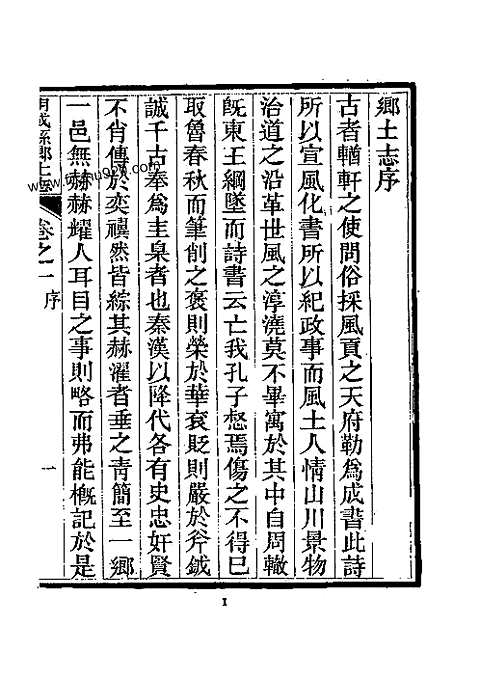 鄉土志序
古者輶軒之使問俗採風貢之天府勒為成書此詩
所以宣風化書所以紀政事而風土人情山川景物
治道之沿革世風之淳澆莫不畢寓於其中自周轍
旣東王綱墜而詩書云亡我孔子惄焉傷之不得已
取魯春秋而筆削之褒則榮於華袞貶則嚴於斧鉞
誠千古奉為圭臬者也秦漢以降代各有史忠奸賢
不肖傳於奕禩然皆綜其赫濯者垂之靑簡至一鄉
一邑無赫赫耀人耳目之事則略而弗能槪記於是
縣鄉土志 卷之一 序 一
1